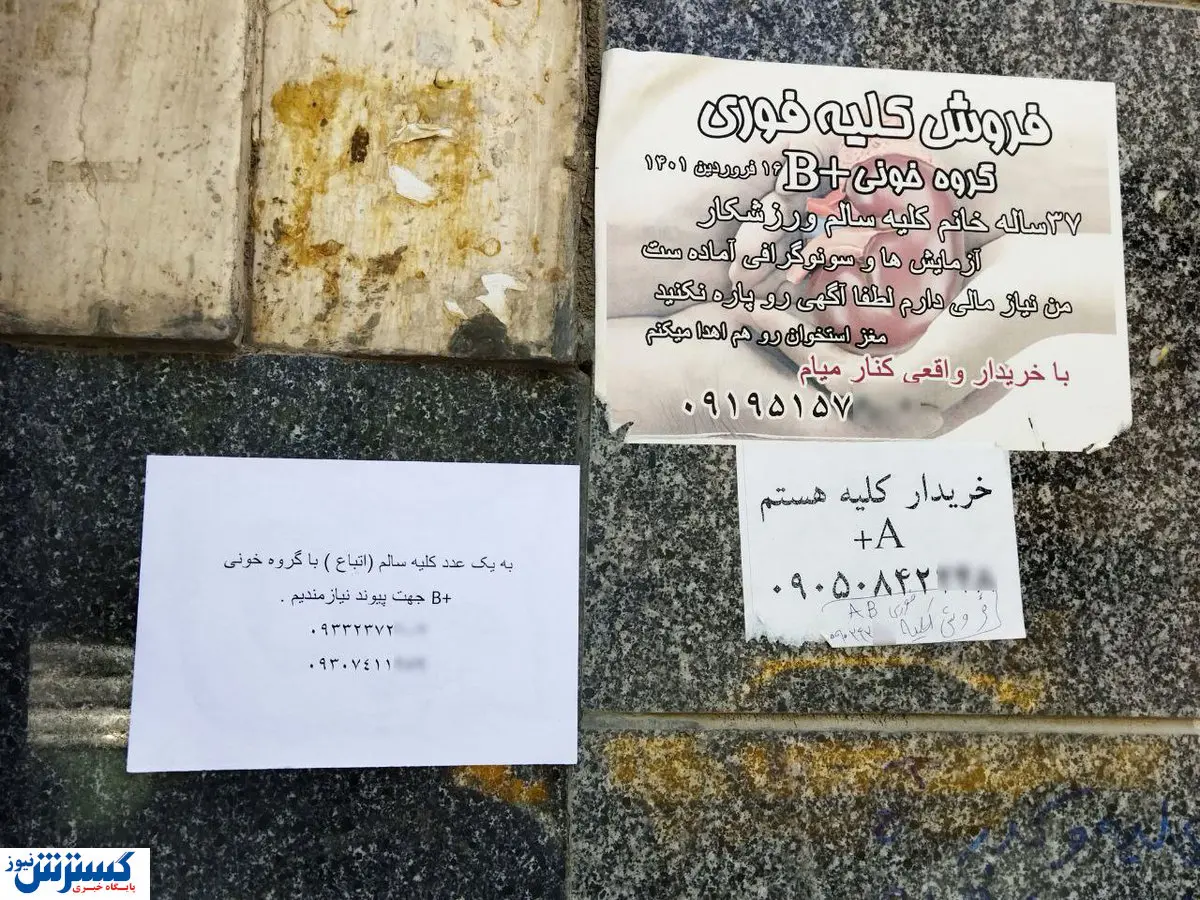 فروش کلیه فوری
گروه خونی +B ۱۶ فروردین ۱۴۰۱
۳۷ساله خانم کلیه سالم ورزشکار
آزمایش ها و سونوگرافی آماده ست
من نیاز مالی دارم لطفا آگهی رو پاره نکنید
مغز استخوان رو هم اهدا میکنم
با خریدار واقعی کنار میام
۰۹۱۹۵۱۵۷
خریدار کلیه هستم
A+
۰۹۰۵۰۸۴۲
فروش کلیه فوری AB
به یک عدد کلیه سالم (اتباع ) با گروه خونی
B+ جهت پیوند نیازمندیم .
۰۹۳۳۲۳۷۲
۰۹۳۰۷٤۱۱
گسترش نیوز
پایگاه خبری